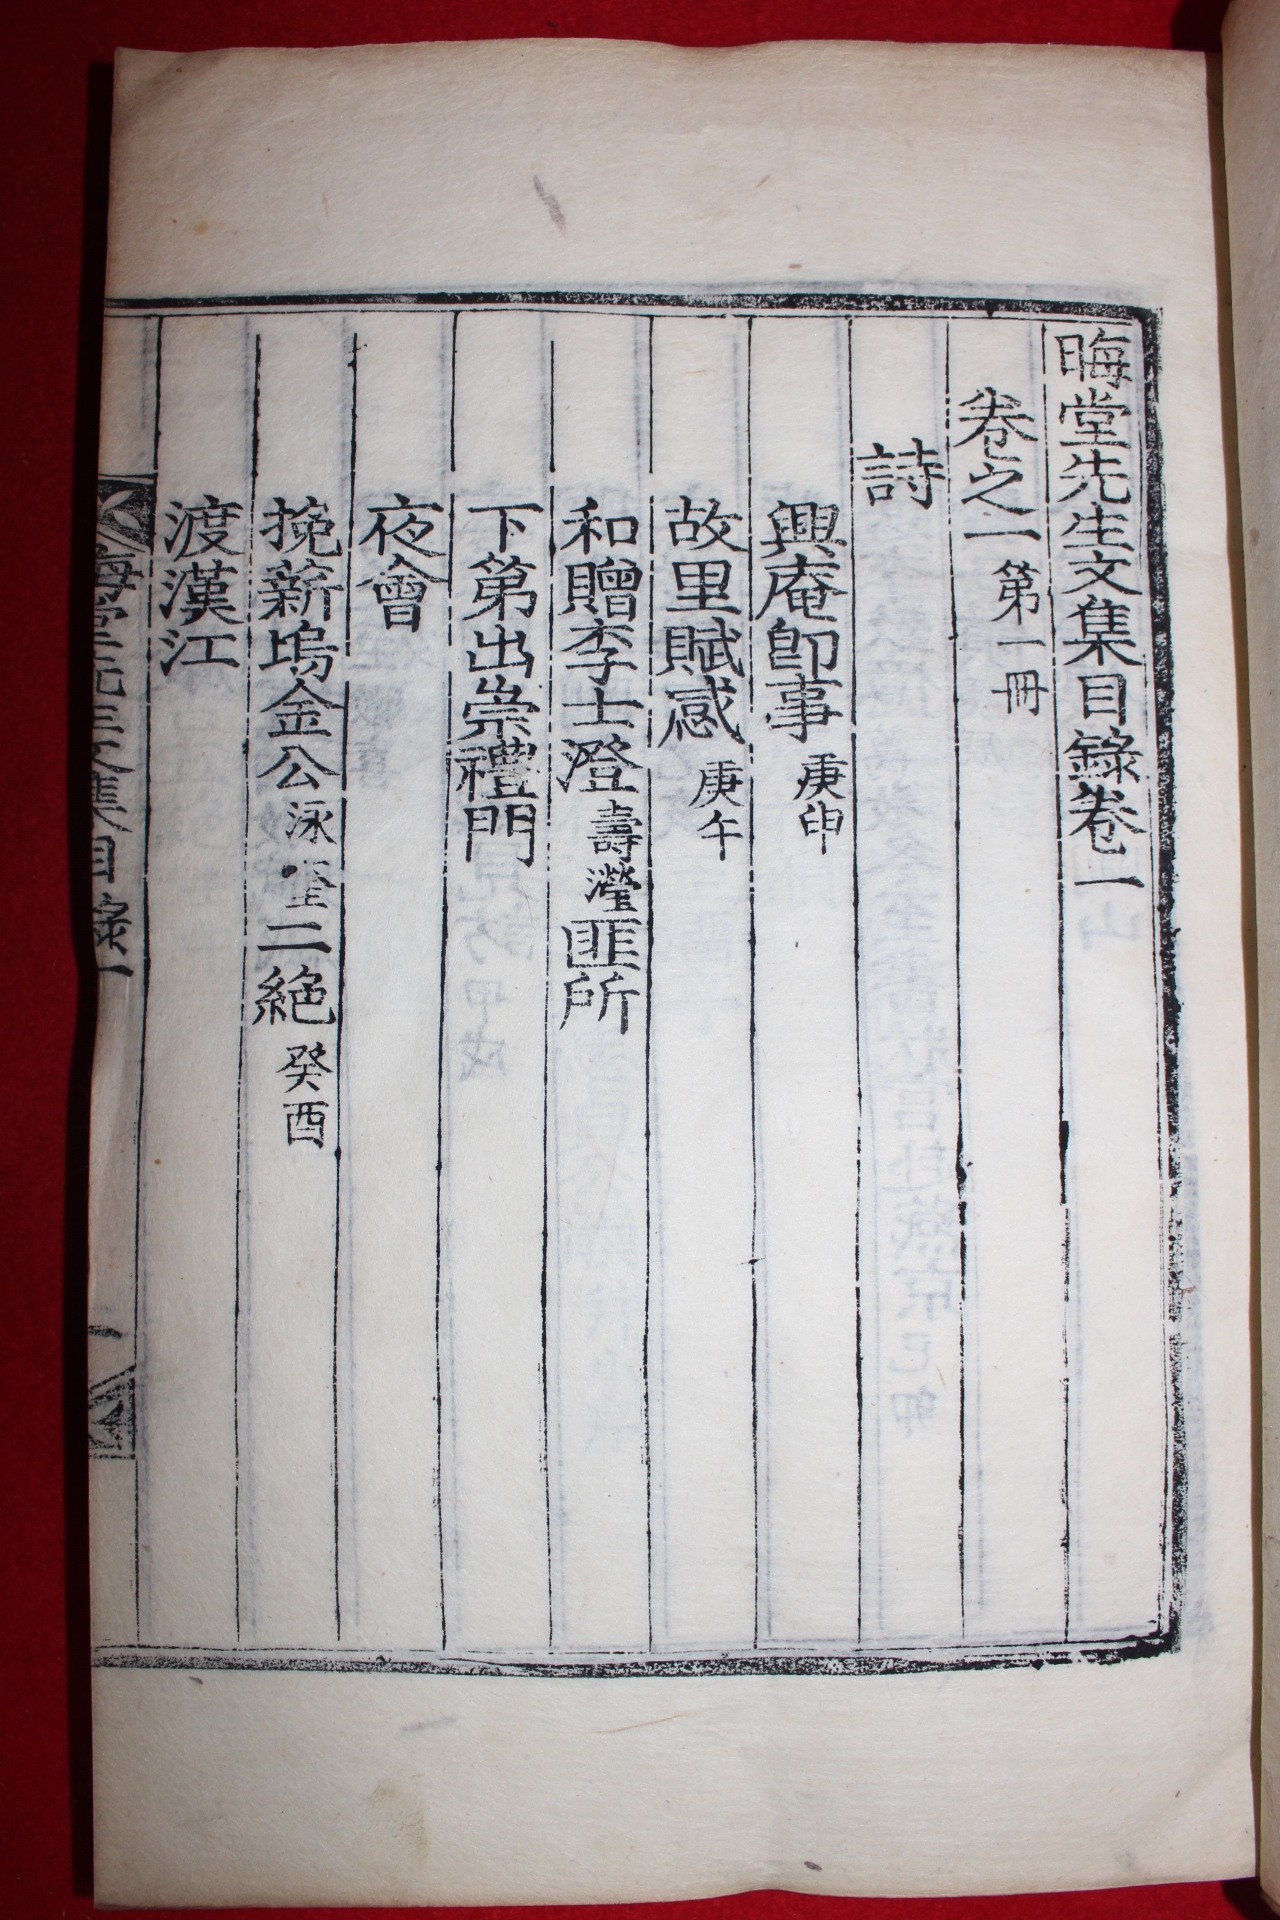 晦堂先生文集目錄卷一
卷之一 第一冊
詩
興庵卽事 庚申
故里賦感 庚午
和贈李士澄 壽瀅 匪所
下第出崇禮門
夜會
挽薪塢金公 泳奎 二絕 癸酉
渡漢江
晦堂先生文集目錄一